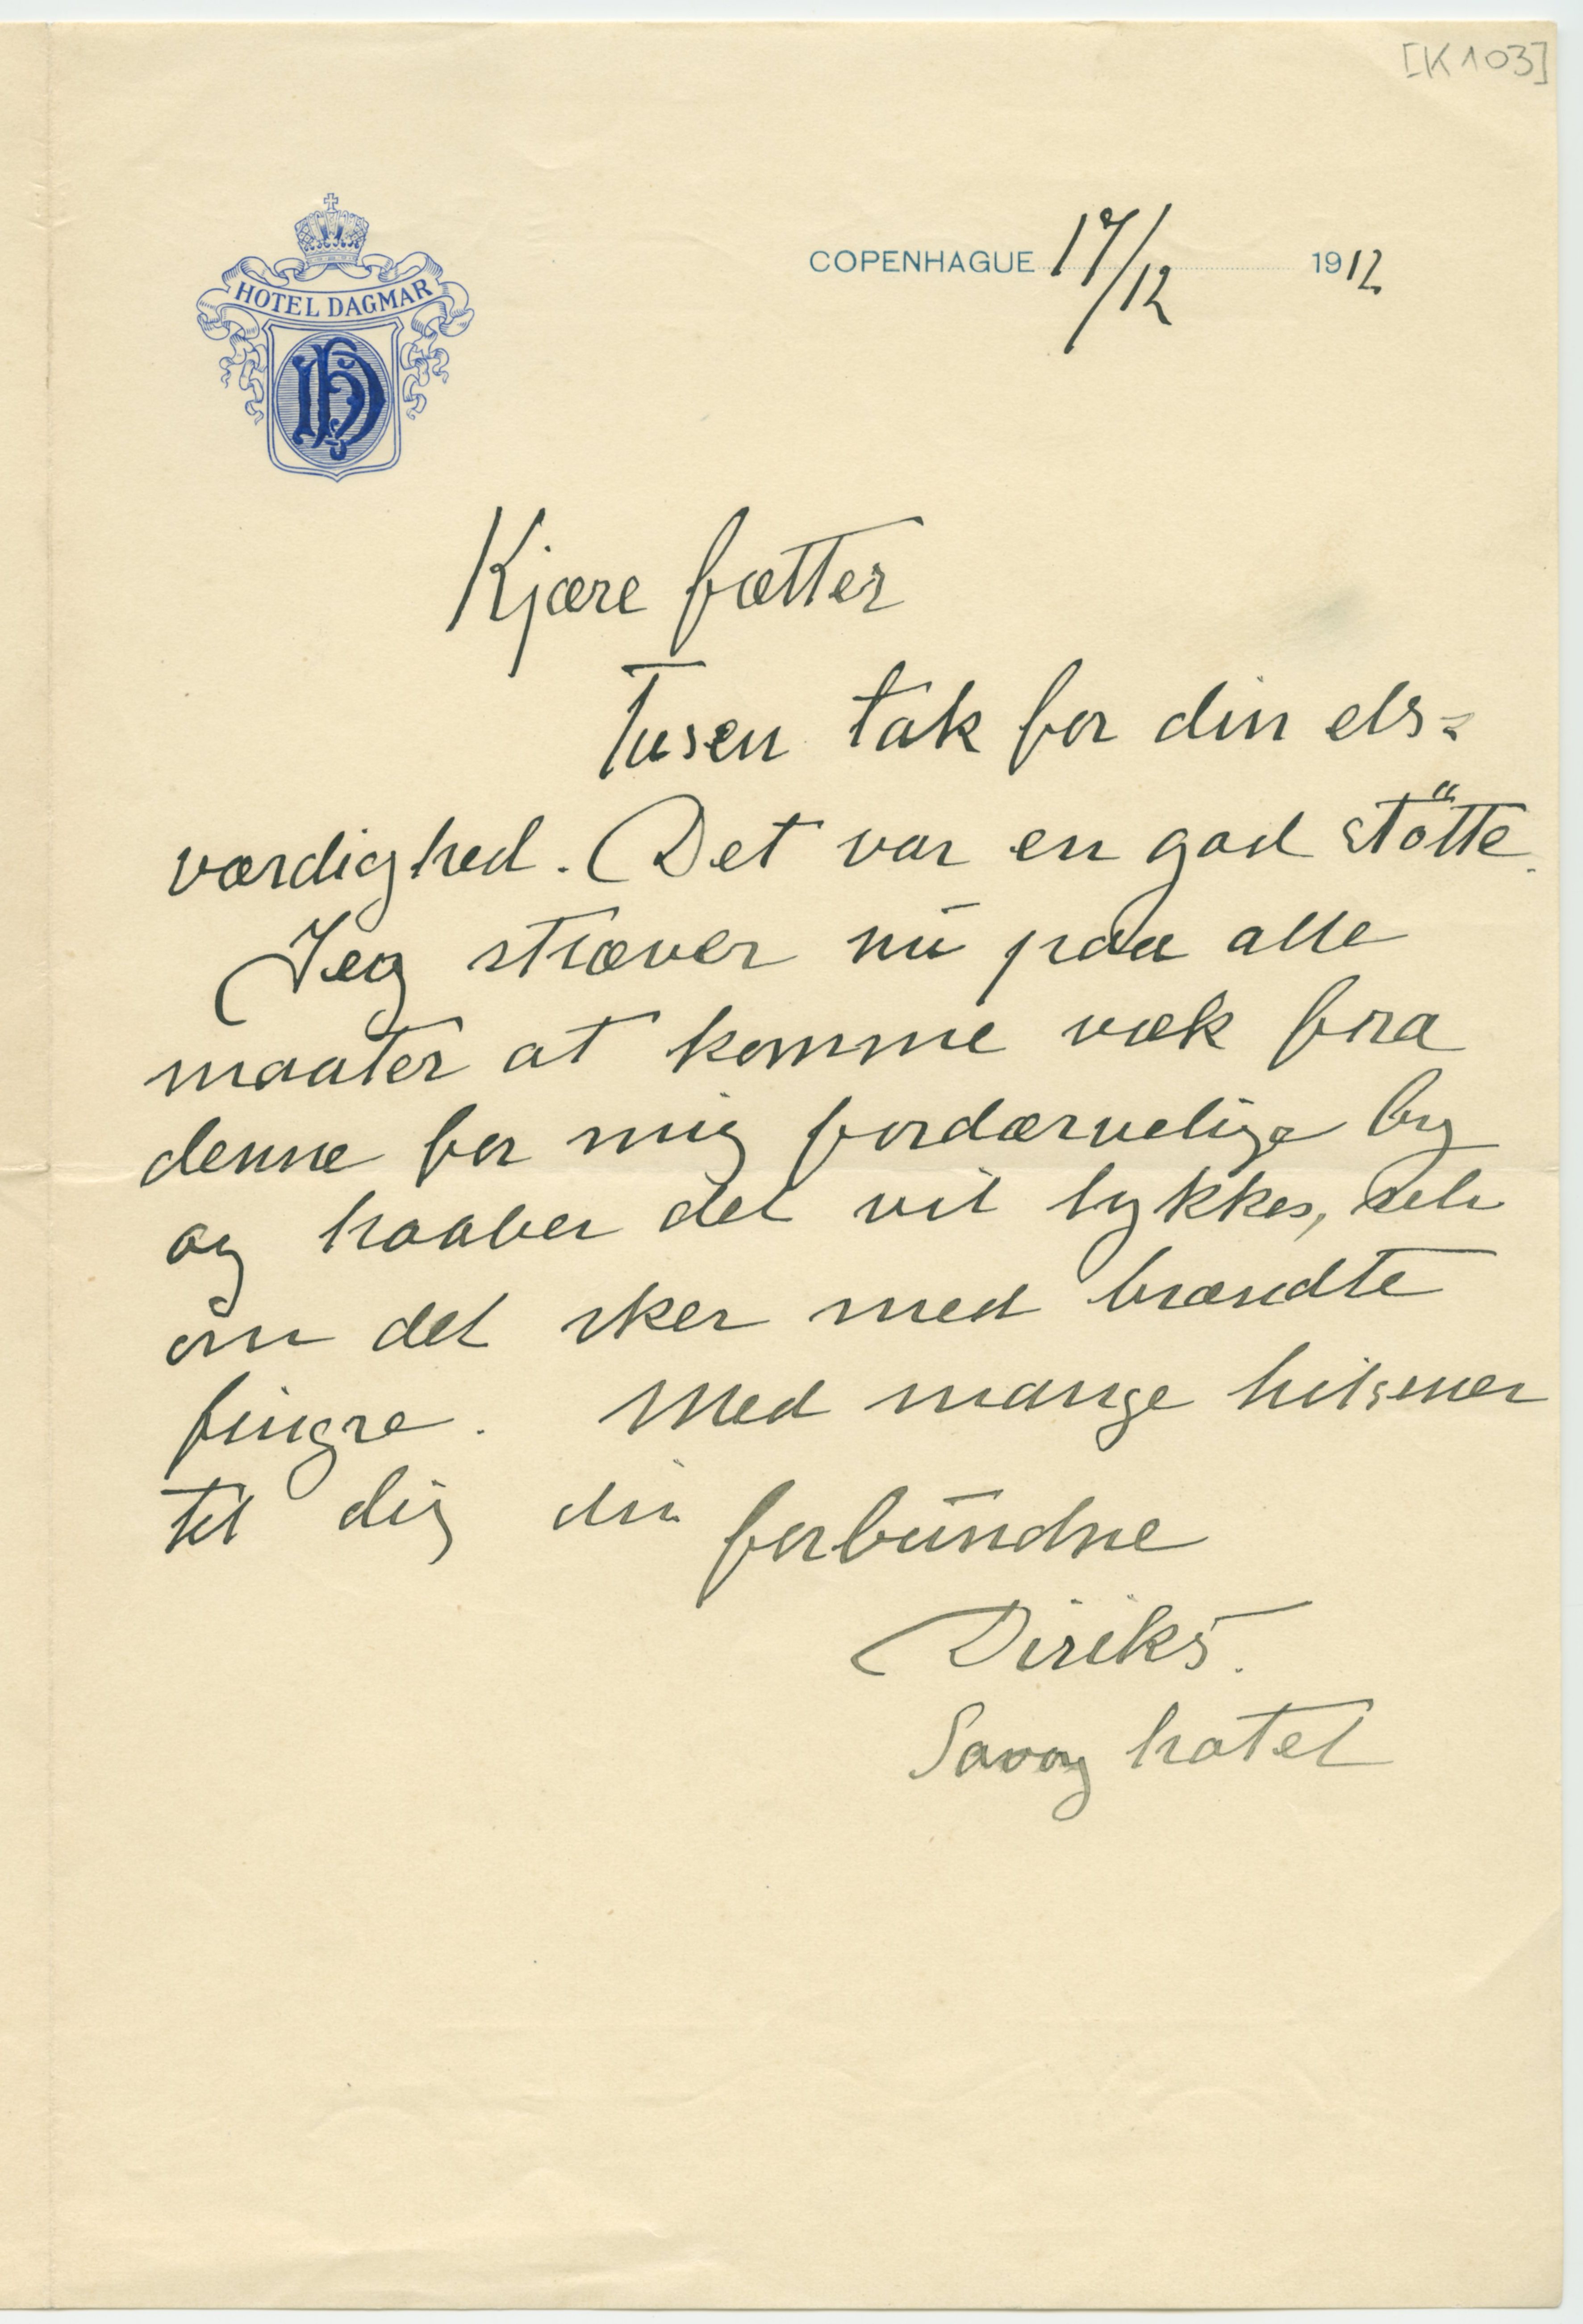 [K 103]
HOTEL DAGMAR
HD
COPENHAGUE 17/12 1912
Kjære fætter
Tusen tak for din els=
værdighed. Det var en god stötte.
Jeg stræver nū paa alle
maater at komme væk fra
denne for mig fordærvelige by
og haaber det vil lykkes, selv
om det sker med brændte
fingre. Med mange hilsener
til dig din forbūndne
Diriks.
Savoy hotel